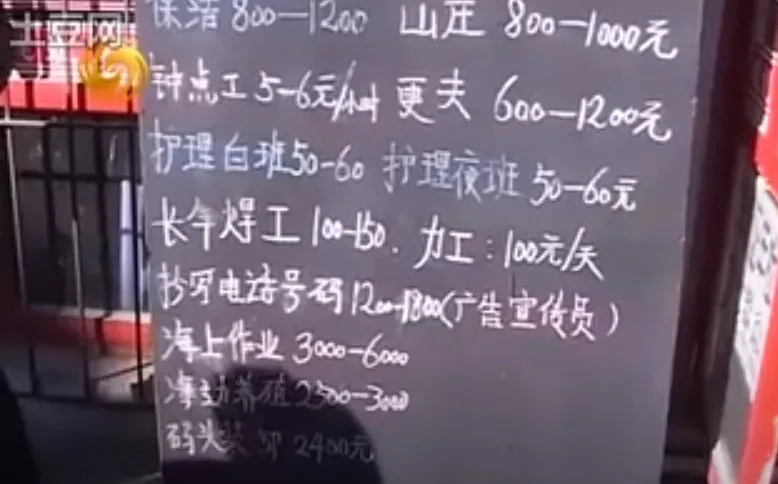 土豆网
保洁800—1200 山庄 800—1000元
钟点工5-6元/小时 更夫 600—1200元
护理白班50-60 护理夜班 50-60元
长年焊工100-150. 力工:100元/天
抄写电话号码1200-1800(广告宣传员)
海上作业 3000-6000
养殖2500-3000
码头装卸 2400元